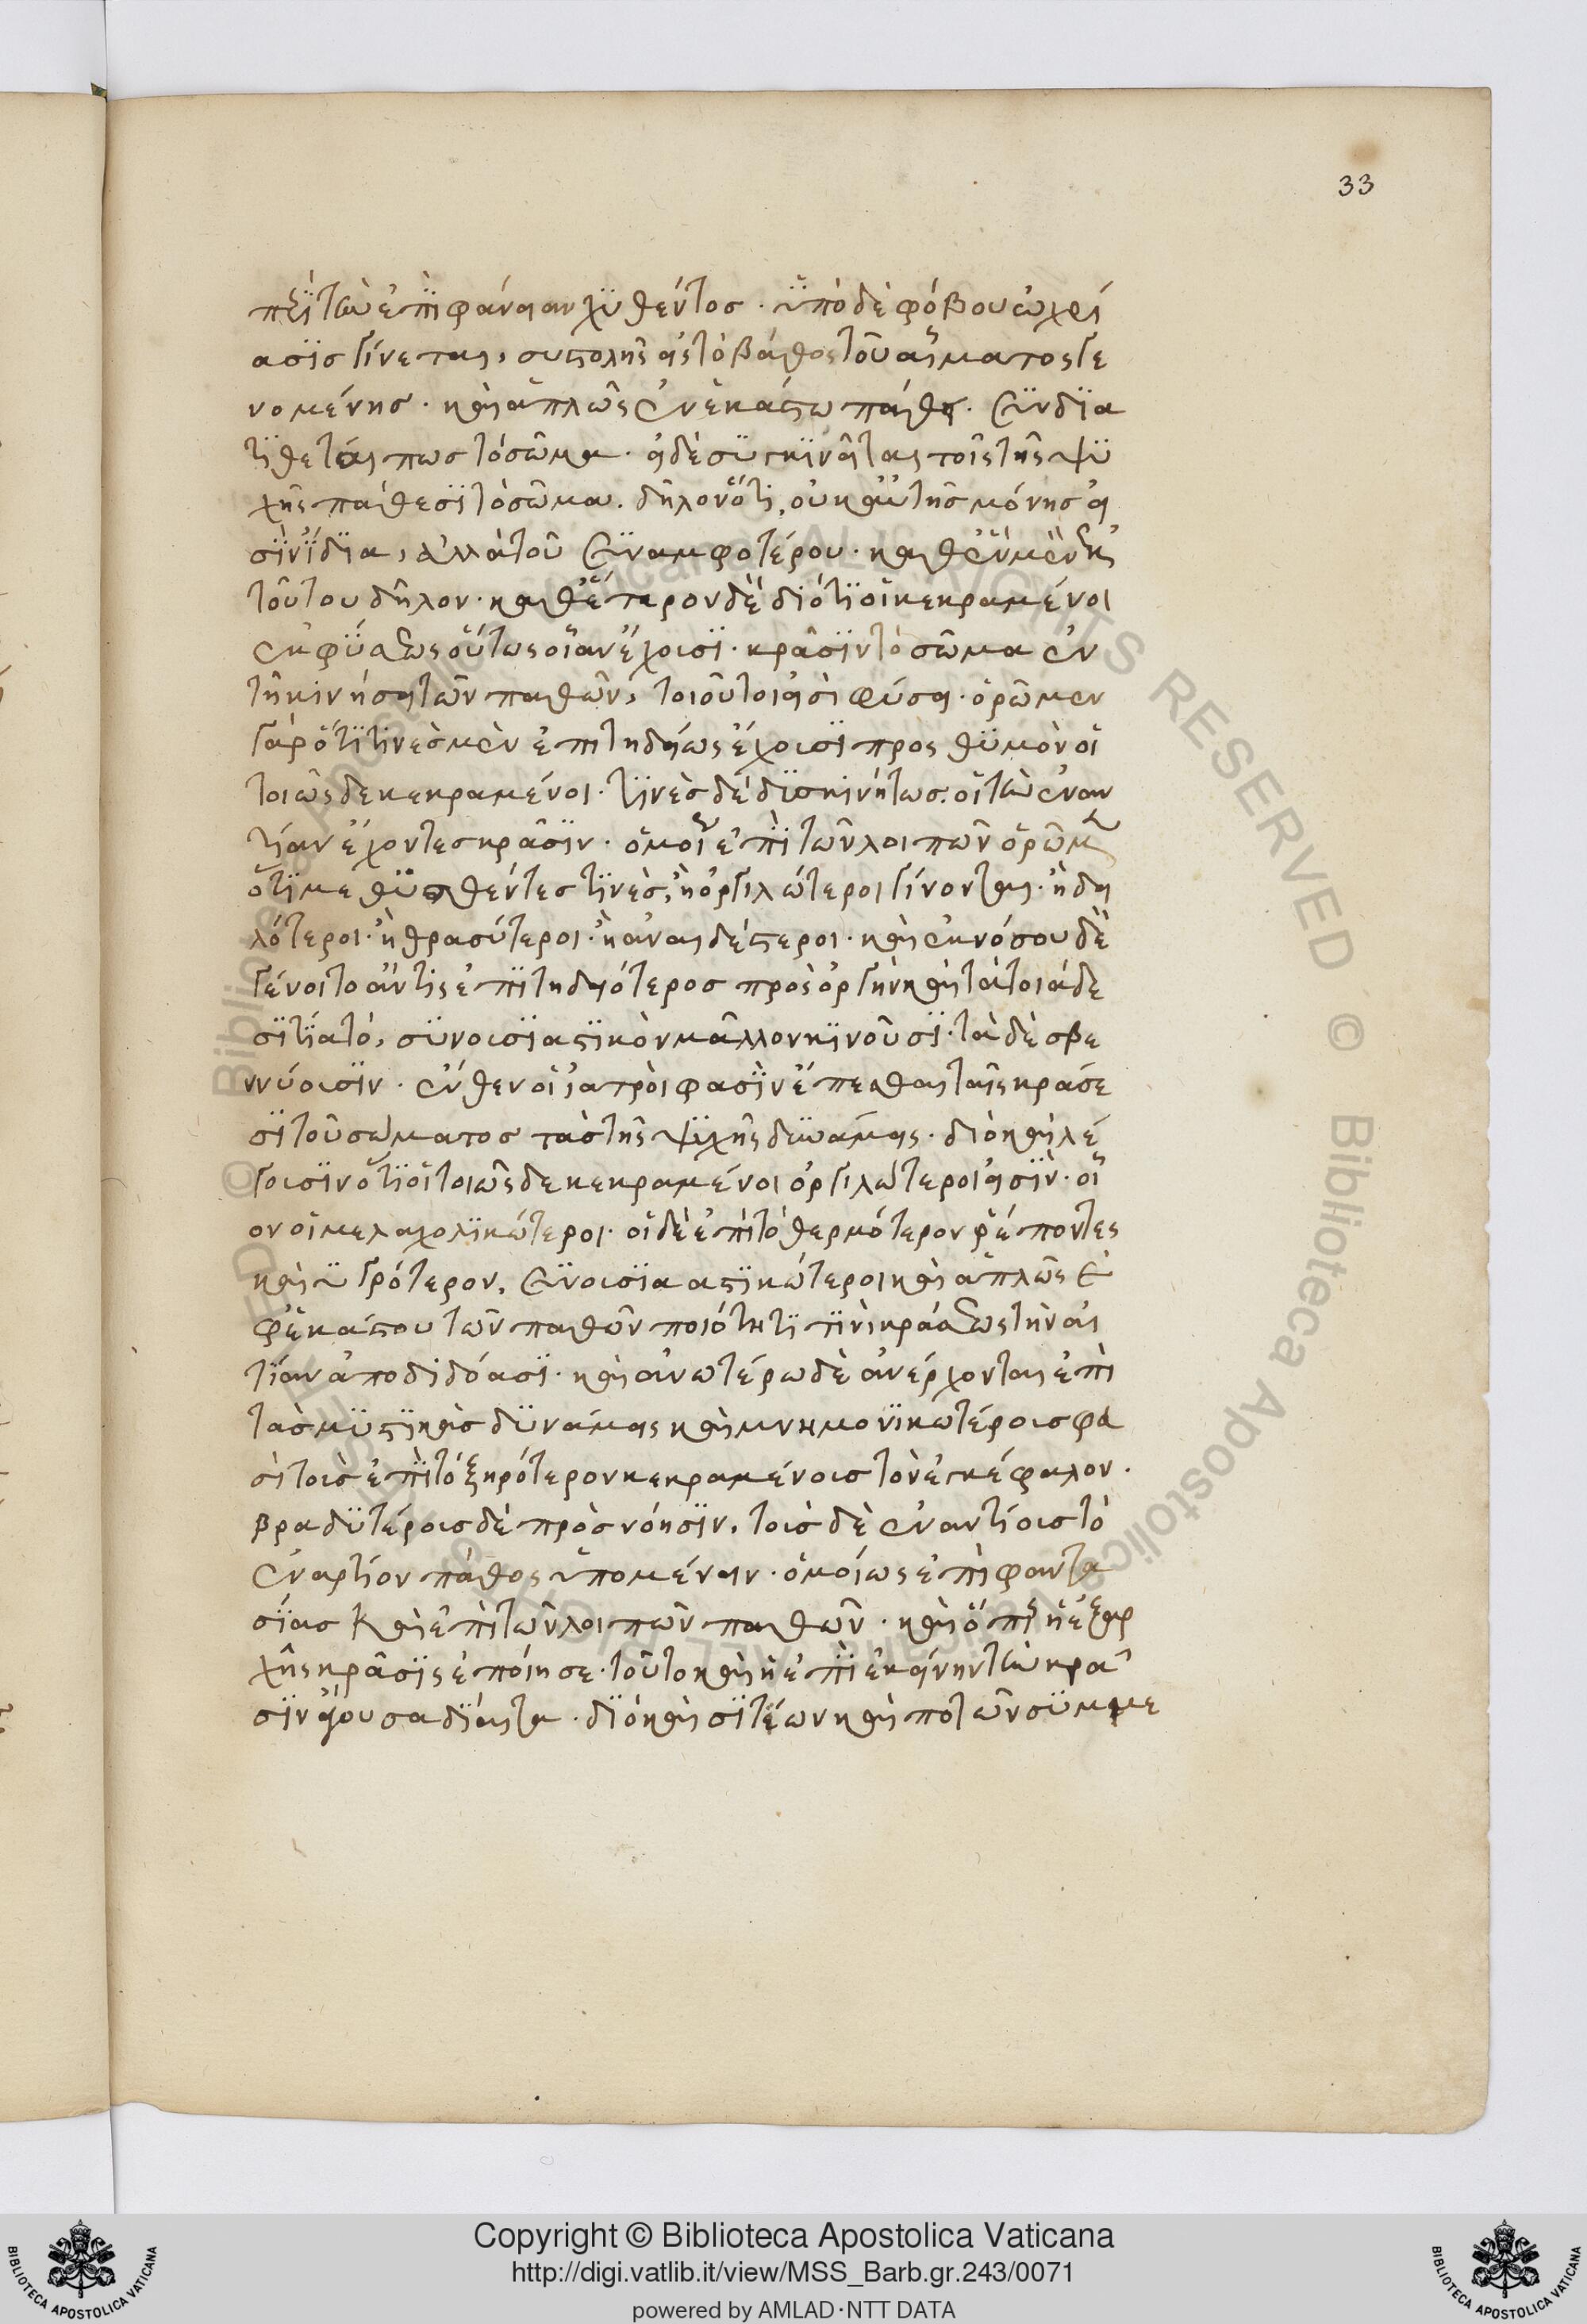 33
περὶ τὴν ἐπιφάνειαν χυθέντος. ὑπὸ δὲ φόβου ὠχρί
ασις γίνεται, συστολῆς εἰς τὸ βάθος τοῦ αἵματος γε
νομένης. καὶ ἁπλῶς ἐν ἑκάστω πάθει. συνδια
τίθεταί πως τὸ σῶμα. εἰ δὲ συγκινεῖται τοῖς τῆς ψυ
χῆς πάθεσι τὸ σῶμα. δῆλον ὅτι, οὐκ αὐτῆς μόνης εἰ
σὶν ἴδια, ἀλλὰ τοῦ συναμφοτέρου. καθ' ἓν μὲν ἐκ
τούτου δῆλον. καθ' ἕτερον δὲ διότι οἱ κεκραμένοι
ἐκ φύσεως οὕτως οἵαν ἔχουσι. κρᾶσιν τὸ σῶμα ἐν
τῆ κινήσει τῶν παθῶν, τοιοῦτοι εἰσὶ φύσει. ὁρῶμεν
γὰρ ὅτι τινὲς μὲν ἐπιτηδείως ἔχουσι πρὸς θυμὸν οἱ
τοιῶσδε κεκραμένοι. τινὲς δὲ δυσκινήτως. οἱ τὴν ἐναν
τίαν ἔχοντες κρᾶσιν. ὁμοίως ἐπὶ τῶν λοιπῶν ὁρῶμεν
ὅτι μεθυσθέντες τινὲς, ἢ ὀργιλώτεροι γίνονται. ἢ δει
λότεροι. ἢ θρασύτεροι. ἢ ἀναιδέστεροι. καὶ ἐκ νόσου δὲ
γένοιτο ἄν τις ἐπιτηδειότερος πρὸς ὀργὴν καὶ τὰ τοιάδε
σιτία τὸ, συνουσιαστικὸν μᾶλλον κινοῦσι. τὰ δὲ σβε
ννύουσιν. ἔνθεν οἱ ἰατροὶ φασὶν ἕπεσθαι ταῖς κράσε
σι τοῦ σώματος τὰς τῆς ψυχῆς δυνάμεις. διὸ καὶ λέ
γουσιν ὅτι οἱ τοιῶσδε κεκραμένοι ὀργιλώτεροι εἰσὶν. οἷ
ον οἱ μελαγχολικώτεροι. οἱ δὲ ἐπὶ τὸ θερμότερον ῥέποντες
καὶ ὑγρότερον, συνουσιαστικώτεροι καὶ ἁπλῶς ἐ
φ' ἑκάστου τῶν παθῶν ποιότητι τινὶ κράσεως τὴν αἰ
τίαν ἀποδιδόασι. καὶ ἀνωτέρω δὲ ἀνέρχονται ἐπὶ
τὰς δυνάμεις καὶ μνημονικωτέροις φα
σὶ τοὶς ἐπὶ τὸ ξηρότερον κεκραμένοις τὸν ἐγκέφαλον.
βραδυτέροις δὲ πρὸς νόησιν. τοὶς δὲ ἐναντίοις τὸ
ἐναντίον πάθος ὑπομένειν. ὁμοίως ἐπὶ φαντα
σίας καὶ ἐπὶ τῶν λοιπῶν παθῶν. καὶ ὅπερ ἡ ἐξ ἀρ
χῆς κρᾶσις ἐποίησε. τοῦτο καὶ ἡ ἐπὶ ἐκείνην τὴν κρᾶ
σιν ἄγουσα δίαιτα. διὸ καὶ σιτίων καὶ ποτῶν συμμε
Copyright © Biblioteca Apostolica Vaticana
http://digi.vatlib.it/view/MSS_Barb.gr.243/0071
powered by AMLAD·NTT DATA